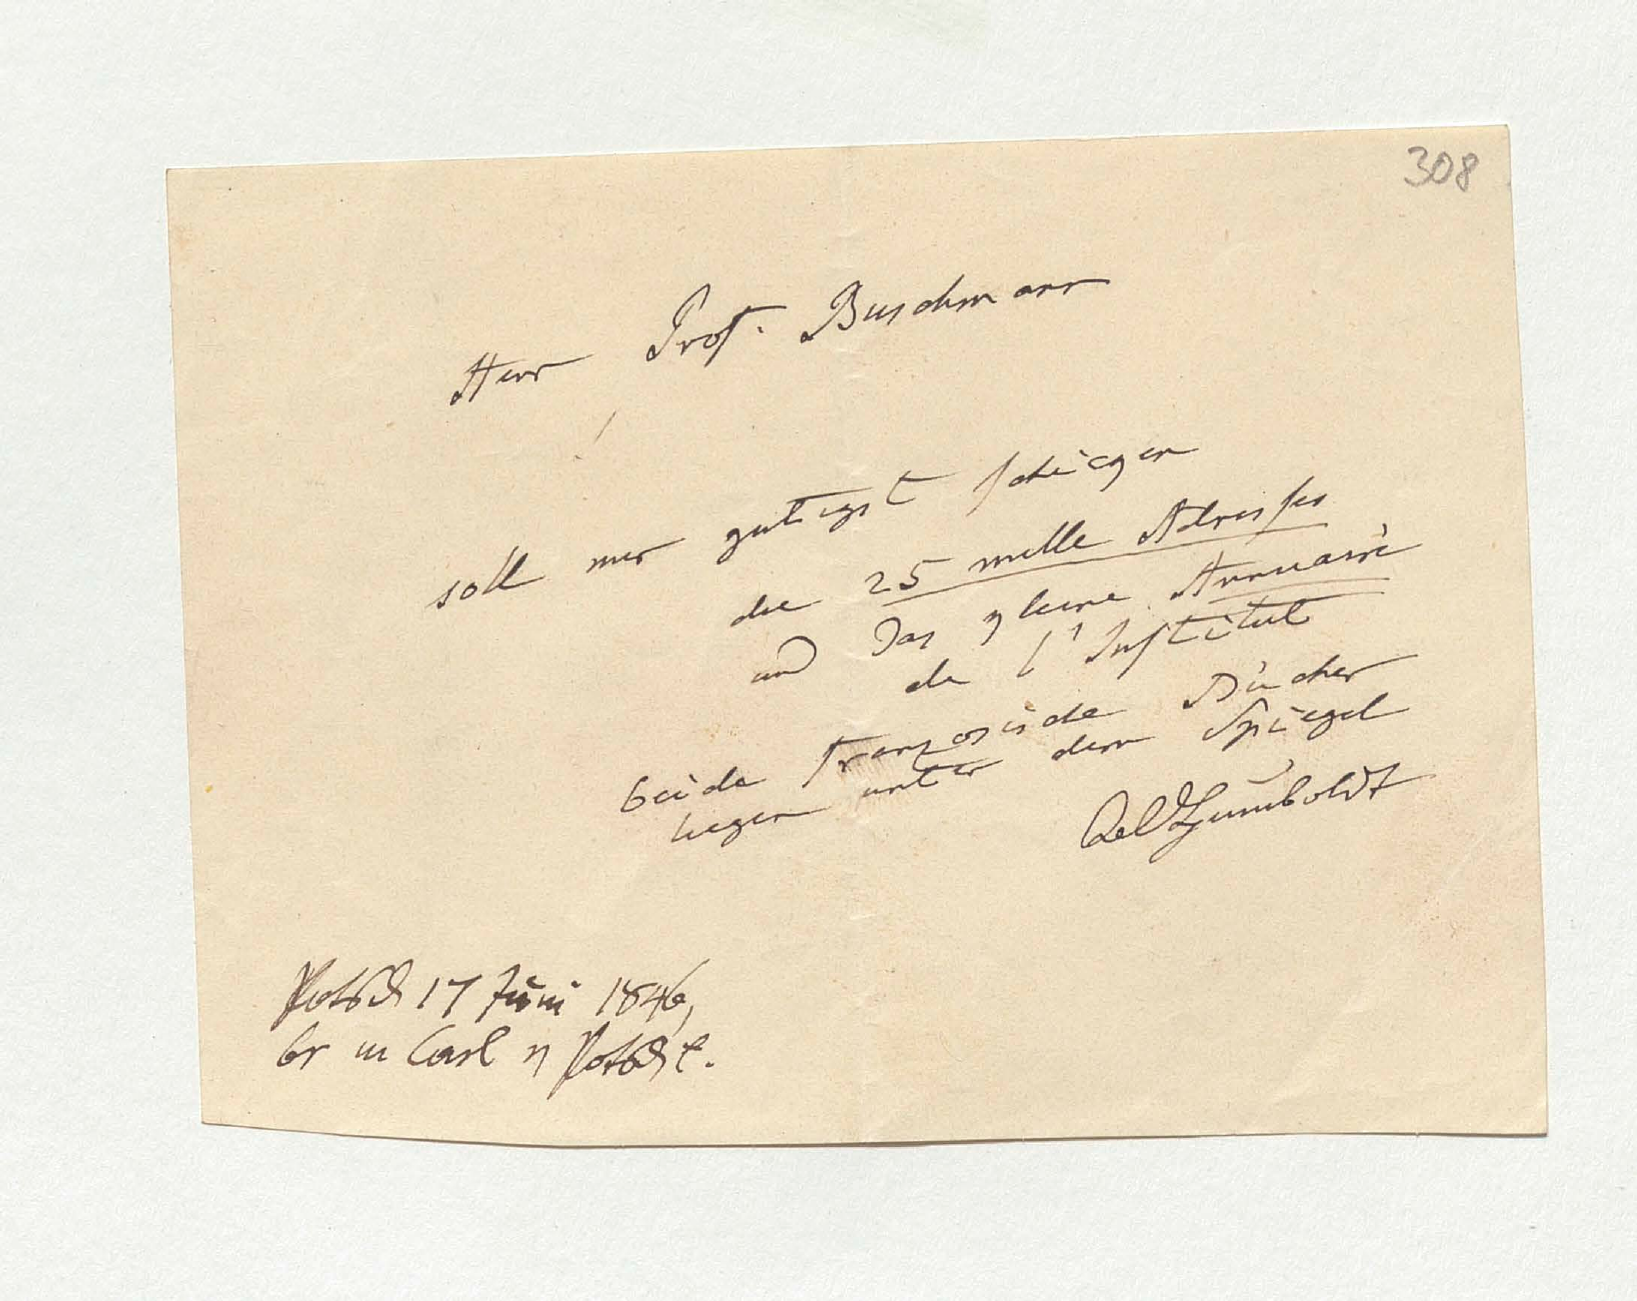 308
Herr Prof. Buschmann
soll mir gutigst schicken
die 25 mille Adresses
und das kleine Annuaire
de l'Institut
beide französische Bücher
liegen unter dem Spiegel
AvHumboldt
17 Juni 1846,
br m Carl n